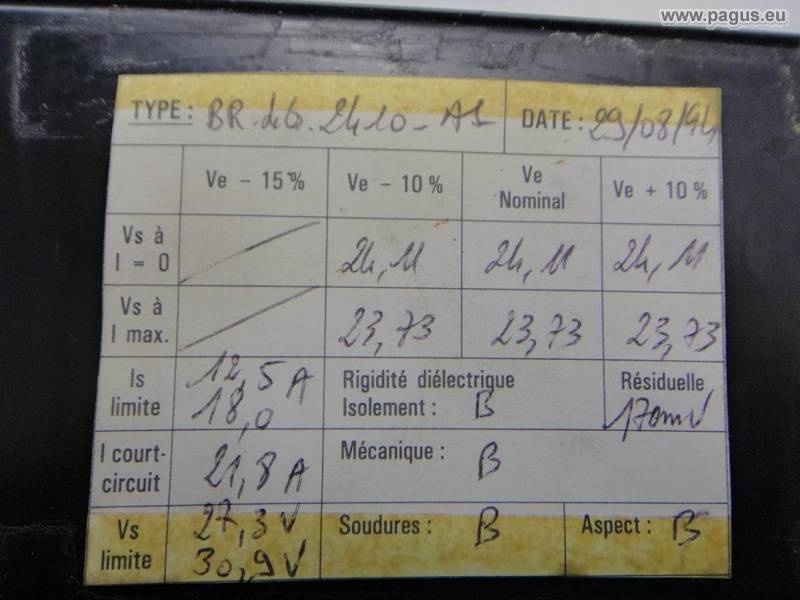 www.pagus.eu
TYPE : BR. 2410-A1 DATE : 29/08/94
Ve - 15% Ve - 10 % Ve Nominal Ve + 10 %
Vs à I = 0 24,11 24,11 24,11
Vs à I max. 23,73 23,73 23,73
Is limite 12,5 A 18,0 Rigidité diélectrique Isolement : B Résiduelle 170mV
I court-circuit 21,8 A Mécanique : B
Vs limite 27,3 V 30,9 V Soudures : B Aspect : B